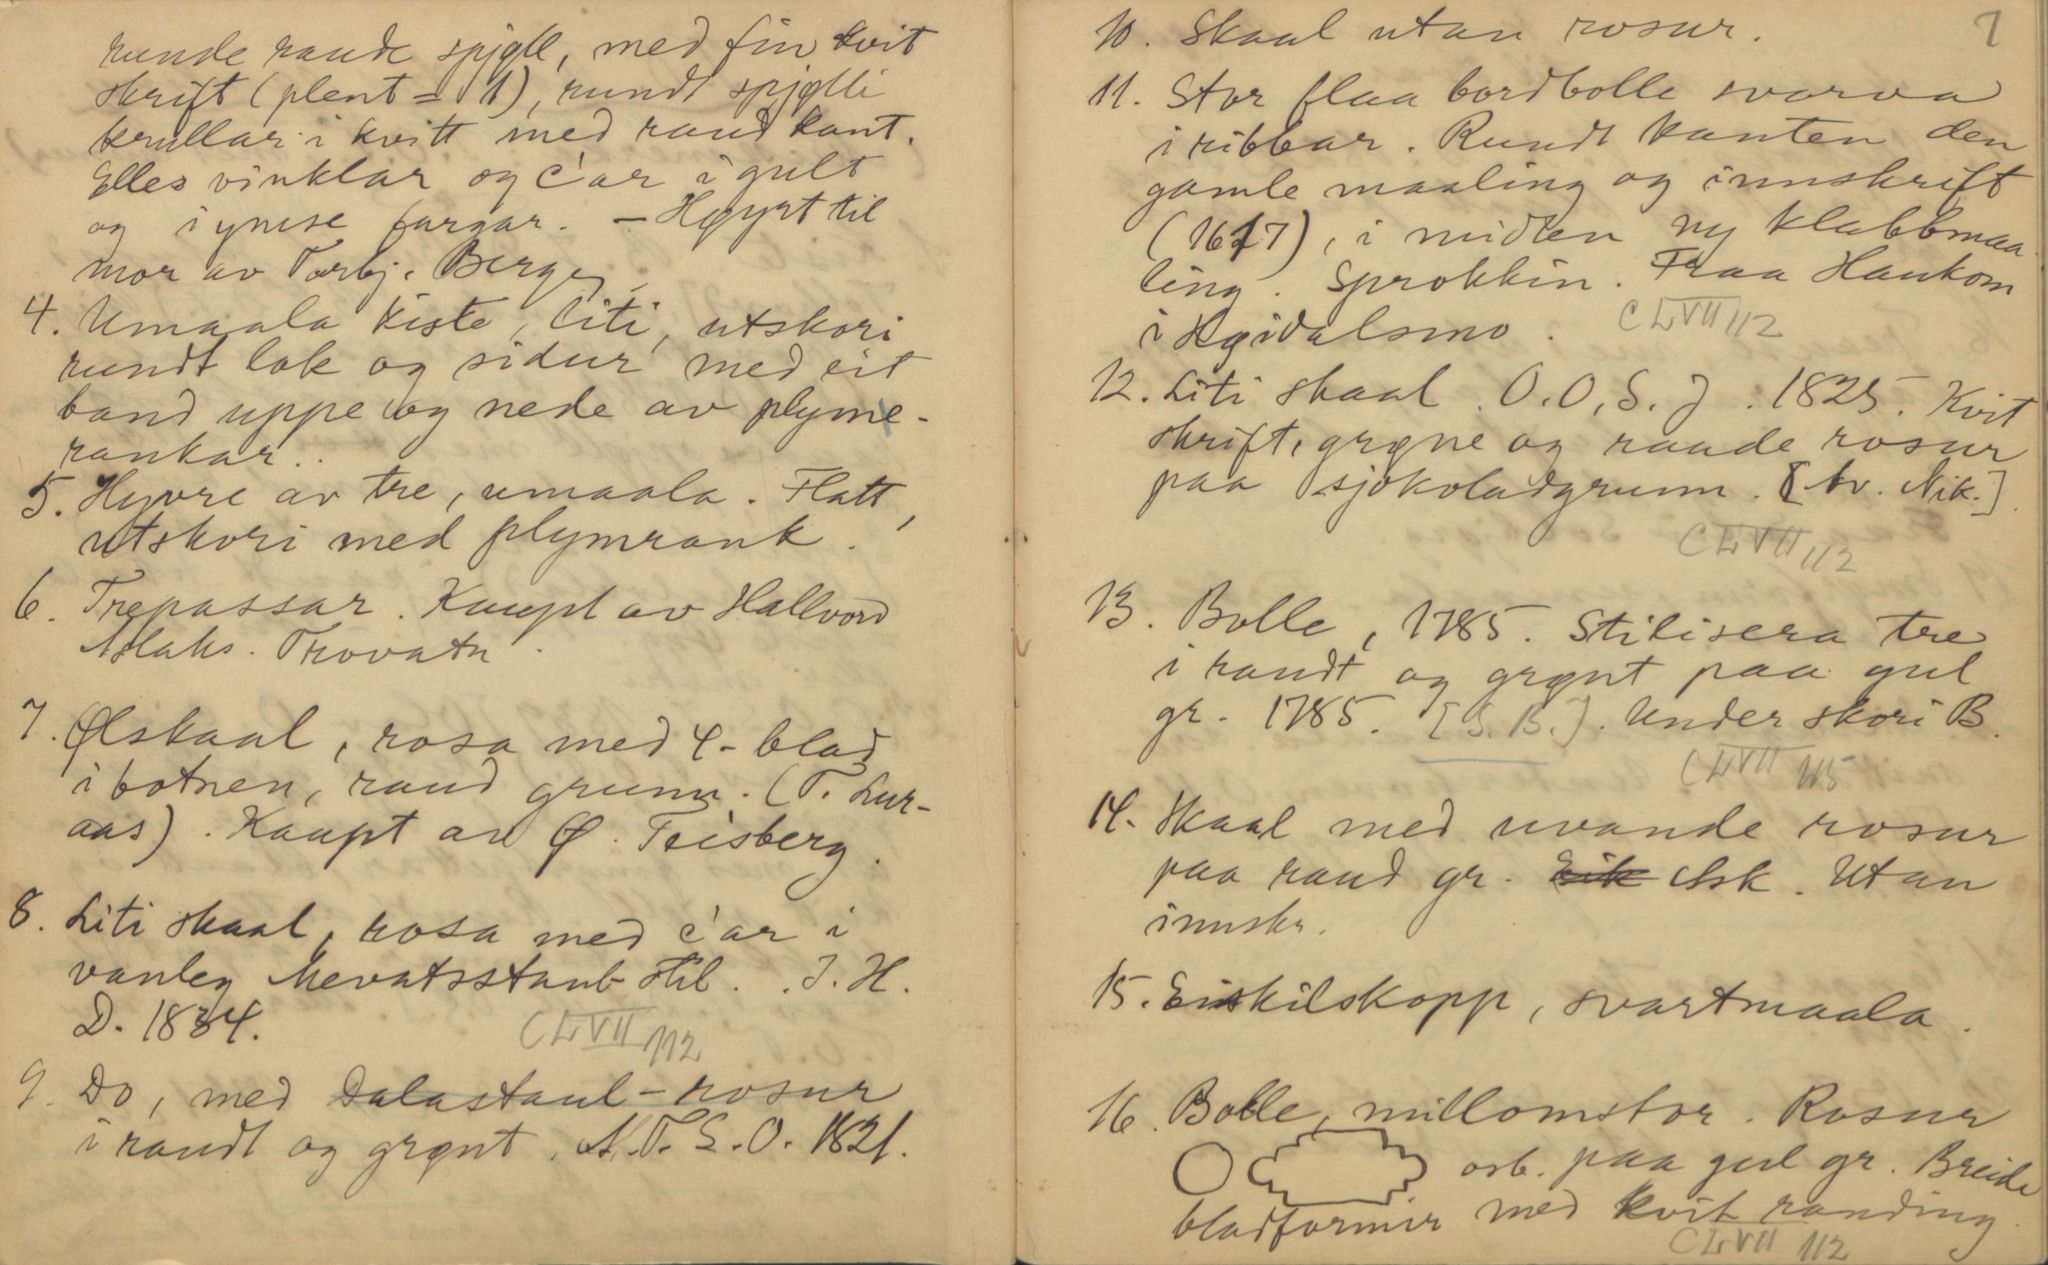 runde raude spjøll, med fin kvit
skrift (plent = 1), rundt spjølli
krullar i kvitt med raud kant.
Elles vinklar og c'ar i gult
og i ymse fargar. — Høyrt til
mor av Torbj. Berge
4. Umaala kiste, liti, utskori
rundt lok og sidur med eit
band uppe og nede av plyme-
rankar..
5. Hyvre av tre, umaala. Flatt,
utskori med plymrank.
6. Trepassar. Kaupt av Hallvord
Aslaks. Trovatn.
7. Ølskaal, rosa med 4-blad
i botnen, raud grunn. (T. Lur-
aas). Kaupt av Ø. Teisberg.
8. Liti skaal, rosa med c'ar i
vanleg Mevatsstaul-stil. J. H.
D. 1834.
CLVII 112
9. Do, med Dalastaul-rosur
i raudt og grønt. A. T. S. O. 1821.
7
10. Skaal utan rosur.
11. Stor flaa bordbolle svarva
i ribbar. Rundt kanten den
gamle maaling og innskrift
(1617), i midten ny klabbmaa-
ling. Sprokkin. Fraa Haukom
i Høidalsmo.
CLVII 112
12. Liti skaal. O. O. S. J. 1825. Kvit
skrift, grøne og raude rosur
paa sjokoladgrunn. [Av. Nik.].
CLVII 112
13. Bolle, 1785. Stilisera tre
i raudt og grønt paa gul
gr. 1785. [S. B.]. Under skori B.
CLVII 115
14. Skaal med uvande rosur
paa raud gr. Eik Ask. Utan
innskr.
15. Einskilskopp, svartmaala.
16. Bolle, millomstor. Rosur
osb. paa gul gr. Breide
bladformir med kvit randing.
CLVII 112